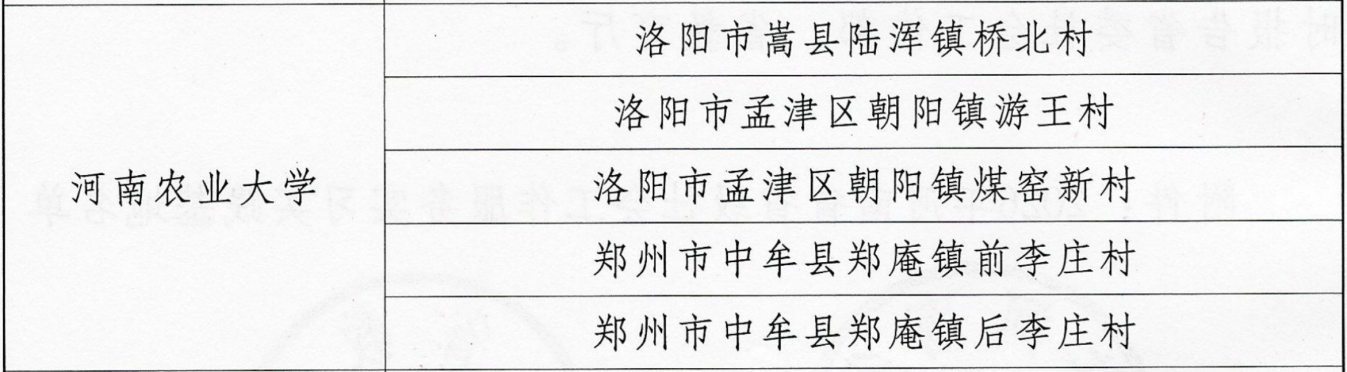 洛阳市嵩县陆浑镇桥北村
洛阳市孟津区朝阳镇游王村
河南农业大学
洛阳市孟津区朝阳镇煤窑新村
郑州市中牟县郑庵镇前李庄村
郑州市中牟县郑庵镇后李庄村